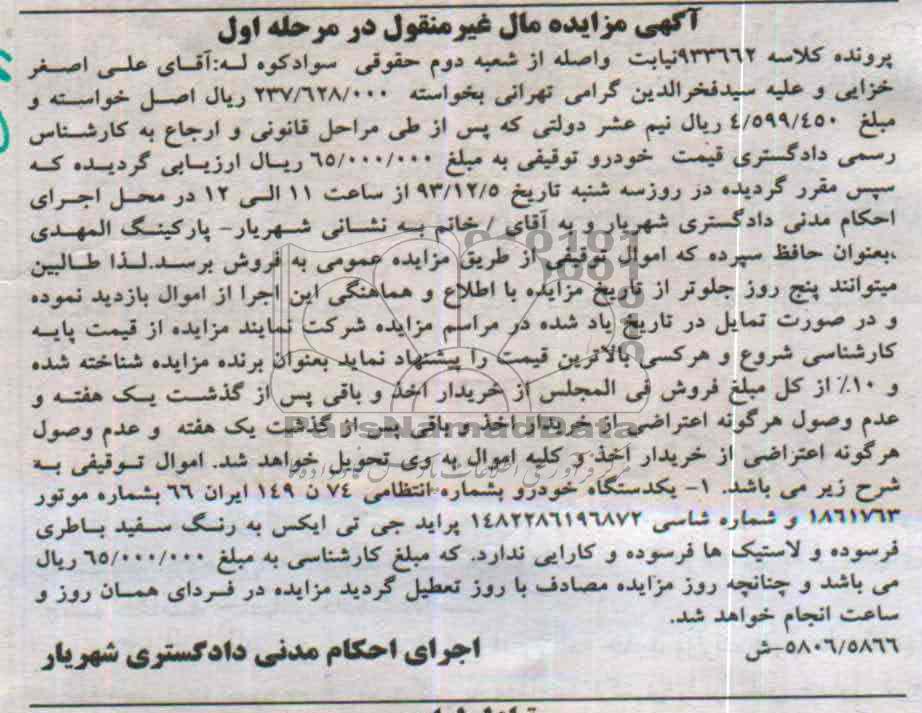 آگهی مزایده مال غیرمنقول در مرحله اول
پرونده کلاسه ۹۳۳۶۶۲نیابت واصله از شعبه دوم حقوقی سوادکوه له:آقای علی اصغر
خزایی و علیه سیدفخرالدین گرامی تهرانی بخواسته ۲۳۷/۶۲۸/۰۰۰ ریال اصل خواسته و
مبلغ ۴/۵۹۹/۴۵۰ ریال نیم عشر دولتی که پس از طی مراحل قانونی و ارجاع به کارشناس
رسمی دادگستری قیمت خودرو توقیفی به مبلغ ۶۵/۰۰۰/۰۰۰ ریال ارزیابی گردیده که
سپس مقرر گردیده در روزسه شنبه تاریخ ۹۳/۱۲/۵ از ساعت ۱۱ الی ۱۲ در محل اجرای
احکام مدنی دادگستری شهریار و به آقای / خانم به نشانی شهریار- پارکینگ المهدی
،بعنوان حافظ سپرده که اموال توقیفی از طریق مزایده عمومی به فروش برسد.لذا طالبین
میتوانند پنج روز جلوتر از تاریخ مزایده با اطلاع و هماهنگی این اجرا از اموال بازدید نموده
و در صورت تمایل در تاریخ یاد شده در مراسم مزایده شرکت نمایند مزایده از قیمت پایه
کارشناسی شروع و هرکسی بالاترین قیمت را پیشنهاد نماید بعنوان برنده مزایده شناخته شده
و ۱۰٪ از کل مبلغ فروش فی المجلس از خریدار اخذ و باقی پس از گذشت یک هفته و
عدم وصول هرگونه اعتراضی از خریدار اخذ و باقی پس از گذشت یک هفته و عدم وصول
هرگونه اعتراضی از خریدار اخذ و کلیه اموال به وی تحویل خواهد شد. اموال توقیفی به
شرح زیر می باشد. ۱- یکدستگاه خودرو بشماره انتظامی ۷۴ ن ۱۴۹ ایران ۶۶ بشماره موتور
۱۸۶۱۷۶۳ و شماره شاسی ۱۴۸۲۲۸۶۱۹۶۸۷۲ پراید جی تی ایکس به رنگ سفید باطری
فرسوده و لاستیک ها فرسوده و کارایی ندارد. که مبلغ کارشناسی به مبلغ ۶۵/۰۰۰/۰۰۰ ریال
می باشد و چنانچه روز مزایده مصادف با روز تعطیل گردید مزایده در فردای همان روز و
ساعت انجام خواهد شد.
۵۸۰۶/۵۸۶۶-ش
اجرای احکام مدنی دادگستری شهریار
ParsNamadData